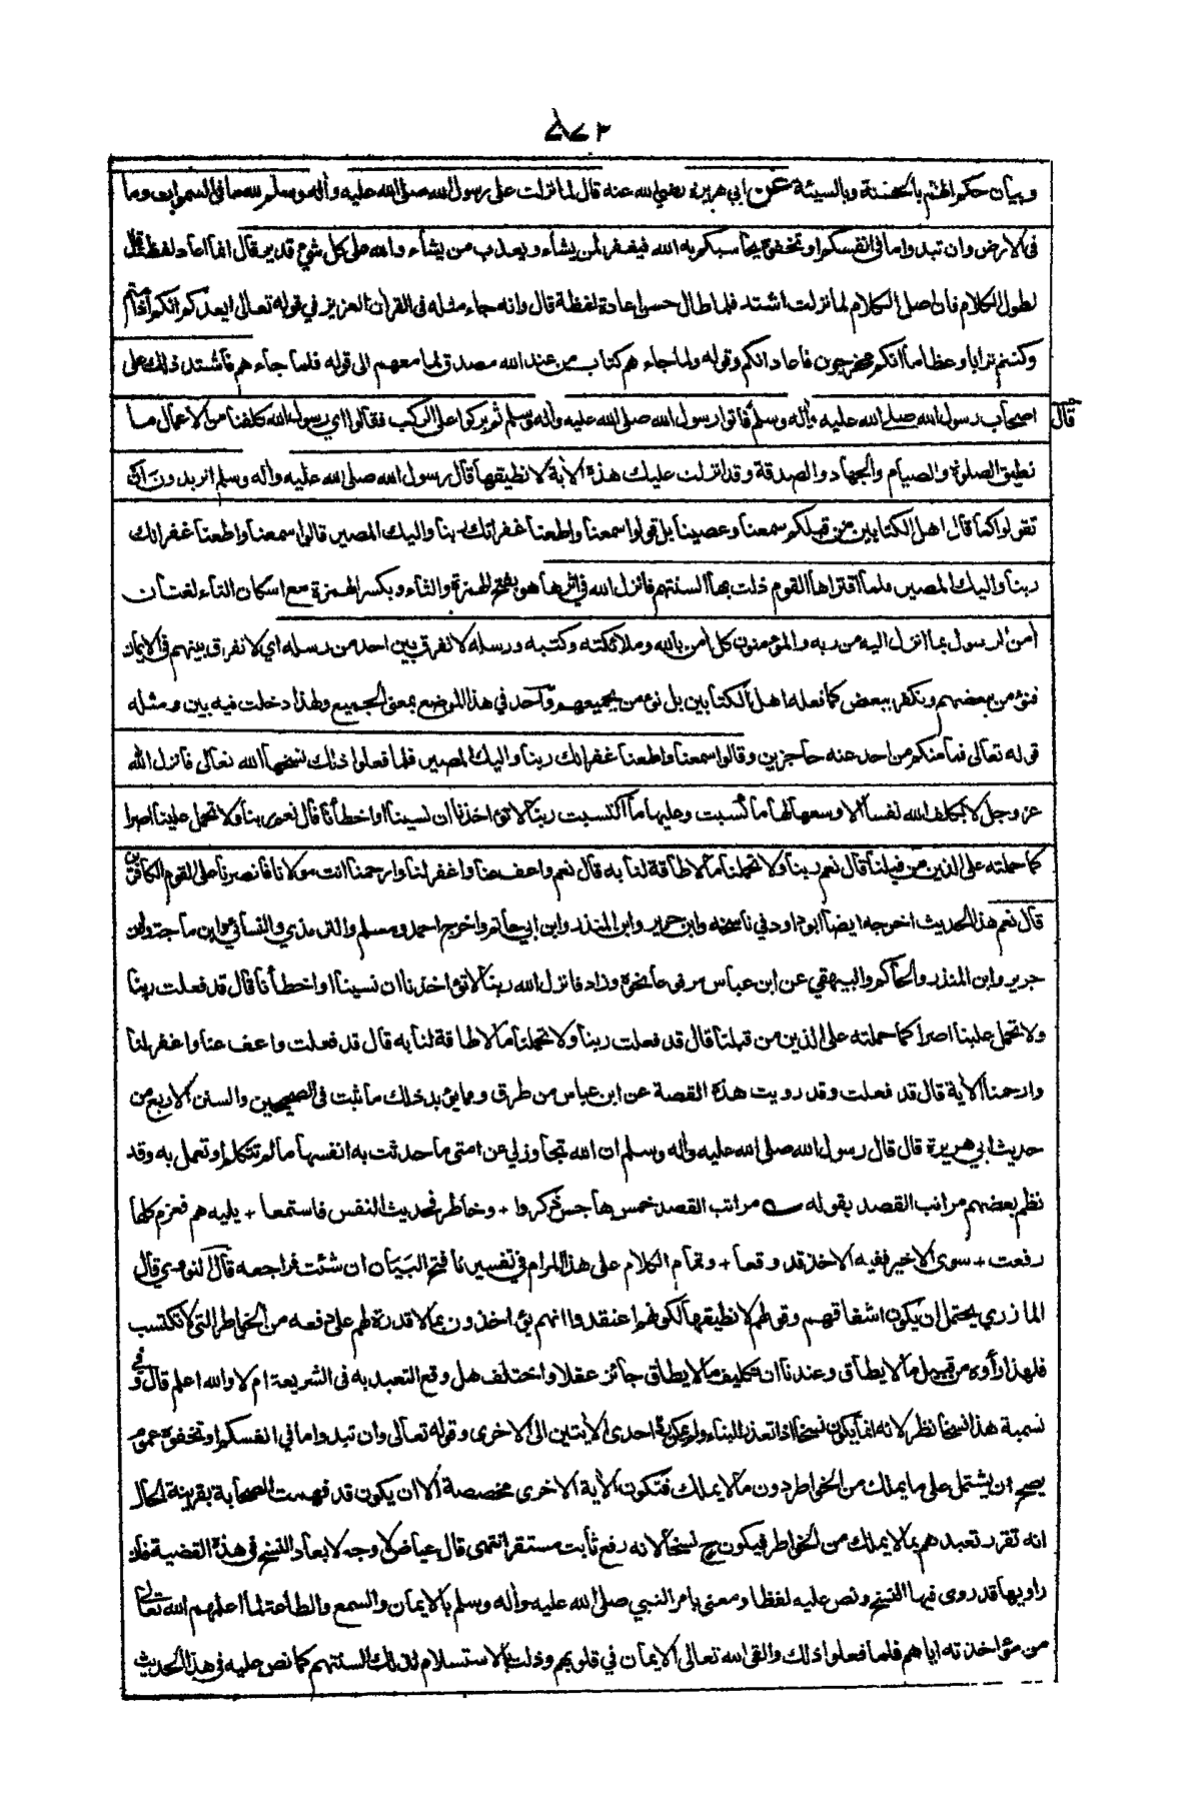 ٥٨٢
وبيان حكم الهم بالحسنة وبالسيئة عن ابي هريرة رضي الله عنه قال لما نزلت على رسول الله صلى الله عليه وآله وسلم لله ما في السموات وما
في الارض وان تبدوا ما في انفسكم او تخفوه يحاسبكم به الله فيغفر لمن يشاء ويعذب من يشاء والله على كل شيء قدير قال انما اعاد لفظة قال
لطول الكلام فان اصل الكلام لما نزلت اشتد فلما طال حسن اعادة لفظة قال وانه جاء مثله في القران العزيز في قوله تعالى ايعدكم انكم اذا متم
وكنتم ترابا وعظاما انكم مخرجون فاعاد انكم وقوله ولما جاءهم كتاب من عند الله مصدق لما معهم الى قوله فلما جاءهم فاشتد ذلك على
اصحاب رسول الله صلى الله عليه وآله وسلم فاتوا رسول الله صلى الله عليه وآله وسلم ثم بركوا على الركب فقالوا اي رسول الله كلفنا من الاعمال ما
قال
نطيق الصلوة والصيام والجهاد والصدقة وقد انزلت عليك هذه الاية لا نطيقها قال رسول الله صلى الله عليه وآله وسلم اتريدون ان
تقولوا كما قال اهل الكتابين من قبلكم سمعنا وعصينا بل قولوا سمعنا واطعنا غفرانك ربنا واليك المصير قالوا سمعنا واطعنا غفرانك
ربنا واليك المصير فلما اقتراها القوم ذلت بها السنتهم فانزل الله في اثرها هو بفتح الهمزة والثاء وبكسر الهمزة مع اسكان الثاء لغتان
امن الرسول بما انزل اليه من ربه والمؤمنون كل امن بالله وملائكته وكتبه ورسله لا نفرق بين احد من رسله اي لا نفرق بينهم في الايمان
فنؤمن ببعضهم ونكفر ببعض كما فعله اهل الكتابين بل نؤمن بجميعهم واحد في هذا الموضع بمعنى الجميع ولهذا دخلت فيه بين ومثله
قوله تعالى فما منكم من احد عنه حاجزين وقالوا سمعنا واطعنا غفرانك ربنا واليك المصير فلما فعلوا ذلك نسخها الله تعالى فانزل الله
عز وجل لا يكلف الله نفسا الا وسعها لها ما كسبت وعليها ما اكتسبت ربنا لا تؤاخذنا ان نسينا او اخطأنا قال نعم ربنا ولا تحمل علينا اصرا
كما حملته على الذين من قبلنا قال نعم ربنا ولا تحملنا ما لا طاقة لنا به قال نعم واعف عنا واغفر لنا وارحمنا انت مولانا فانصرنا على القوم الكافرين
قال نعم هذا الحديث اخرجه ايضا ابوداود في ناسخه وابن جرير وابن المنذر وابن ابي حاتم واخرج احمد ومسلم والترمذي والنسائي وابن ماجة وابن
جرير وابن المنذر والحاكم والبيهقي عن ابن عباس مرفوعا نحوه وزاد فانزل الله ربنا لا تؤاخذنا ان نسينا او اخطأنا قال قد فعلت ربنا
ولا تحمل علينا اصرا كما حملته على الذين من قبلنا قال قد فعلت ربنا ولا تحملنا ما لا طاقة لنا به قال قد فعلت واعف عنا واغفر لنا
وارحمنا الاية قال قد فعلت وقد رويت هذه القصة عن ابن عباس من طرق ومما يؤيد ذلك ما ثبت في الصحيحين والسنن الاربع من
حديث ابي هريرة قال قال رسول الله صلى الله عليه وآله وسلم ان الله تجاوز لي عن امتي ما حدثت به انفسها ما لم تتكلم او تعمل به وقد
نظم بعضهم مراتب القصد بقوله مراتب القصد خمس هاجس ذكروا + وخاطر فحديث النفس فاستمعا + يليه هم فعزم كلها
رفعت + سوى الاخير ففيه الاخذ قد وقعا + وتمام الكلام على هذا المرام في تفسيرنا فتح البيان ان شئت فراجعه قال النووي قال
المازري يحتمل ان يكون اشفاقهم وقولهم لا نطيقها لكونهم اعتقدوا انهم يؤاخذون بما لا قدرة لهم على دفعه من الخواطر التي لا تكتسب
فلهذا رأوه من قبيل ما لا يطاق وعندنا ان تكليف ما لا يطاق جائز عقلا واختلف هل وقع التعبد به في الشريعة ام لا والله اعلم قال وفي
تسمية هذا نسخا نظر لانه انما يكون نسخا اذا تعذر البناء ولم يمكن رد احدى الايتين الى الاخرى وقوله تعالى وان تبدوا ما في انفسكم او تخفوه عموم
يصح ان يشتمل على ما يملك من الخواطر دون ما لا يملك فتكون الاية الاخرى مخصصة الا ان يكون قد فهمت الصحابة بقرينة الحال
انه تقرر تعبدهم بما لا يملك من الخواطر فيكون ح نسخا لانه رفع ثابت مستقر انتهى قال عياض لا وجه لابعاد النسخ في هذه القضية فان
راويها قد روى فيها النسخ ونص عليه لفظا ومعنى بامر النبي صلى الله عليه وآله وسلم بالايمان والسمع والطاعة لما اعلمهم الله تعالى
من مؤاخذته اياهم فلما فعلوا ذلك والقى الله تعالى الايمان في قلوبهم وذلت بالاستسلام لذلك السنتهم كما نص عليه في هذا الحديث